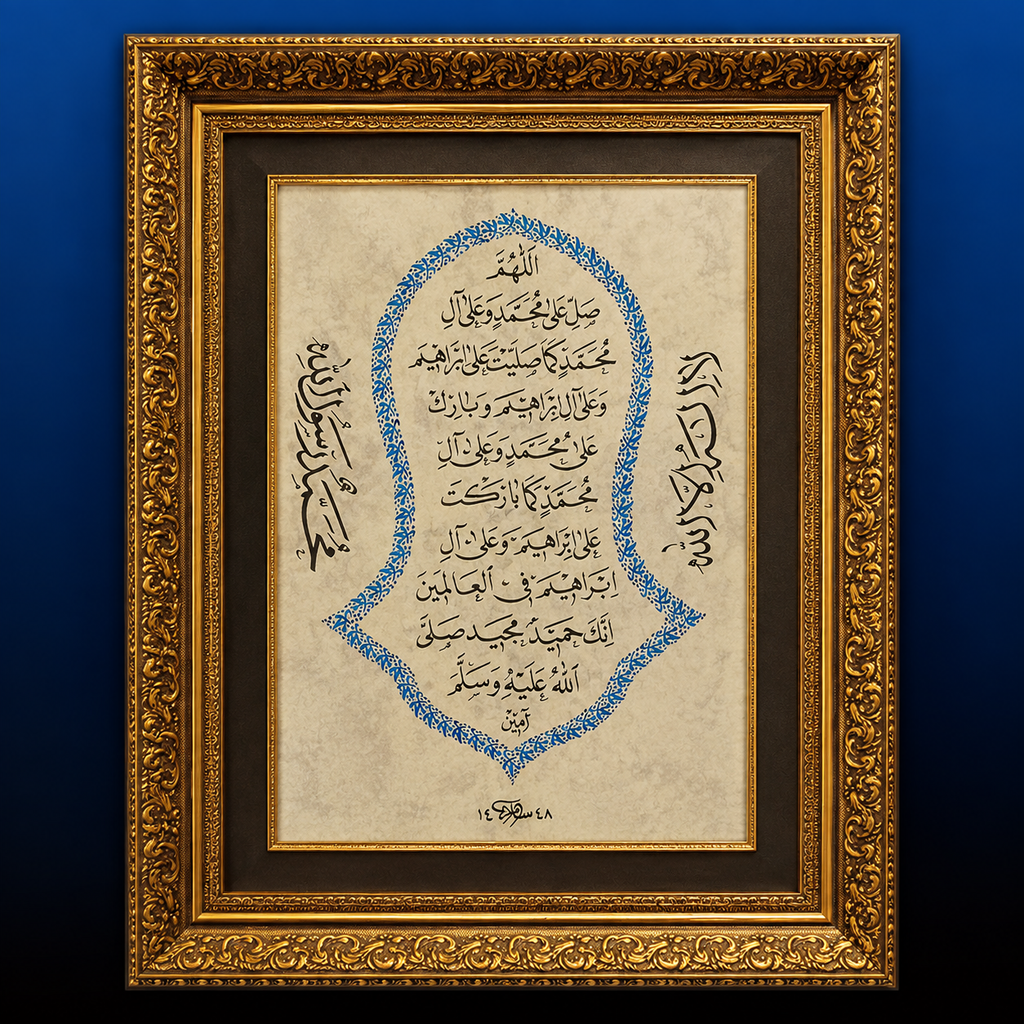 لا إله إلا الله
اَللّٰهُمَّ
صَلِّ عَلىٰ مُحَمَّدٍ وَعَلىٰ آلِ
مُحَمَّدٍ كَمَا صَلَّيْتَ عَلىٰ اِبْرَاهِيمَ
وَعَلىٰ آلِ اِبْرَاهِيْمَ وَبَارِكْ
عَلىٰ مُحَمَّدٍ وَعَلىٰ آلِ
مُحَمَّدٍ كَمَا بَارَكْتَ
عَلىٰ اِبْرَاهِيمَ وَعَلىٰ آلِ
اِبْرَاهِيْمَ فِي الْعَالَمِيْنَ
اِنَّكَ حَمِيْدٌ مَجِيدٌ صَلَّى
اللّٰهُ عَلَيْهِ وَسَلَّمَ
آمِيْن
محمد رسول الله
١٤ ٤٨